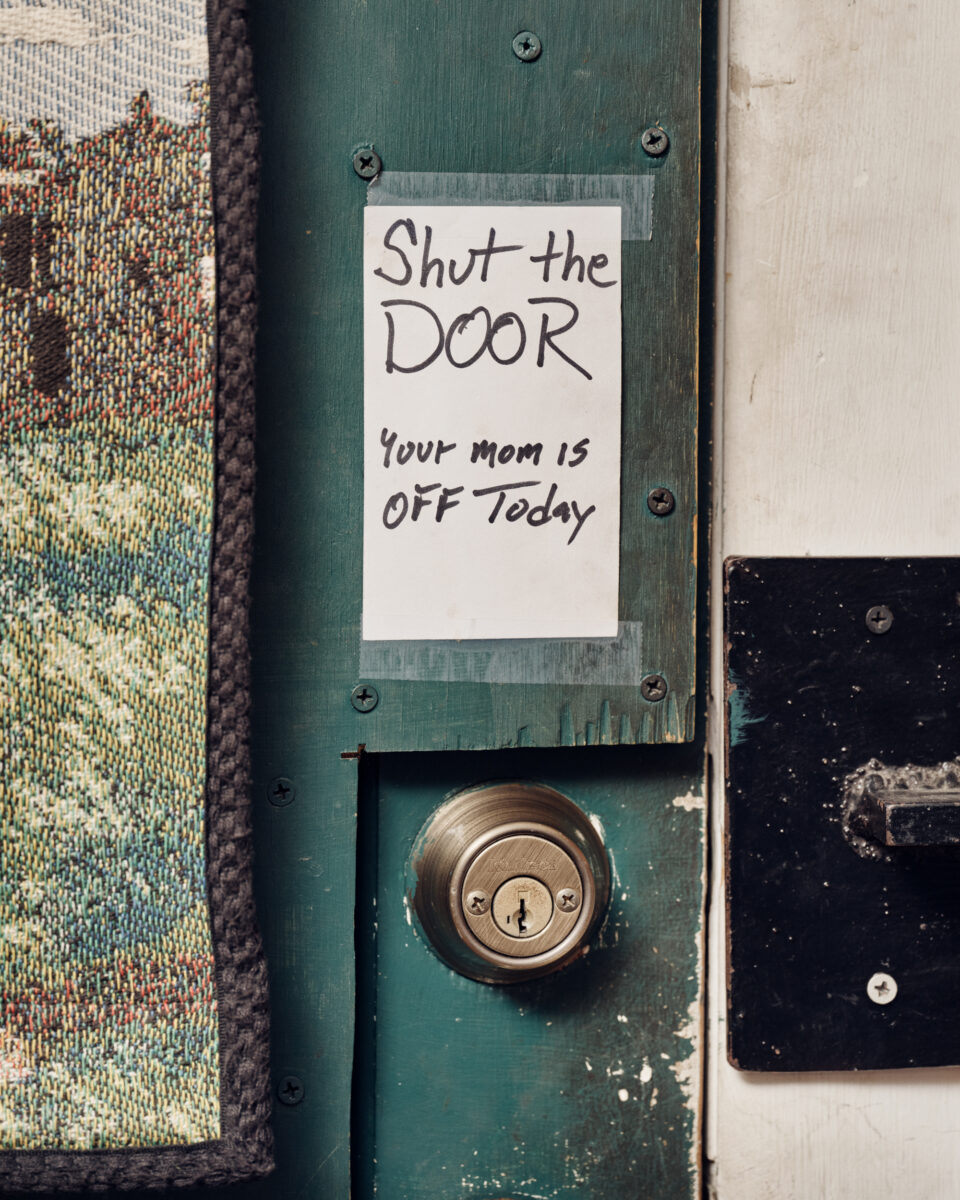 Shut the
DOOR
Your mom is
OFF Today